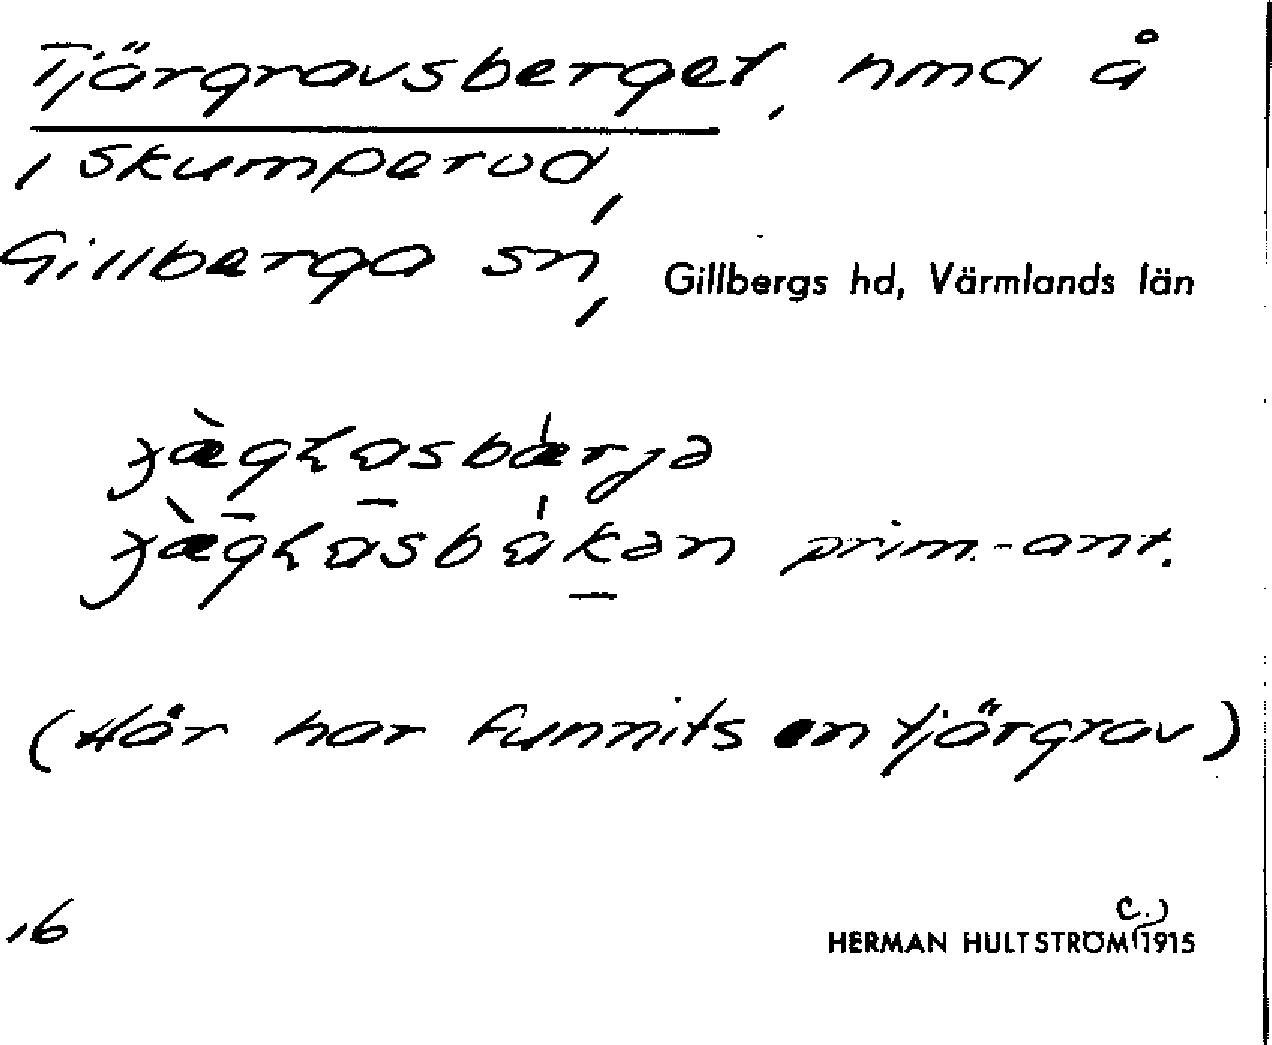 Tjärgravsberget, nmd å
i Skumperud,
Gillberga sn, Gillbergs hd, Värmlands län
prim.-ant.
(Här har funnits en tjärgrav)
16
HERMAN HULTSTRÖM (c.) 1915